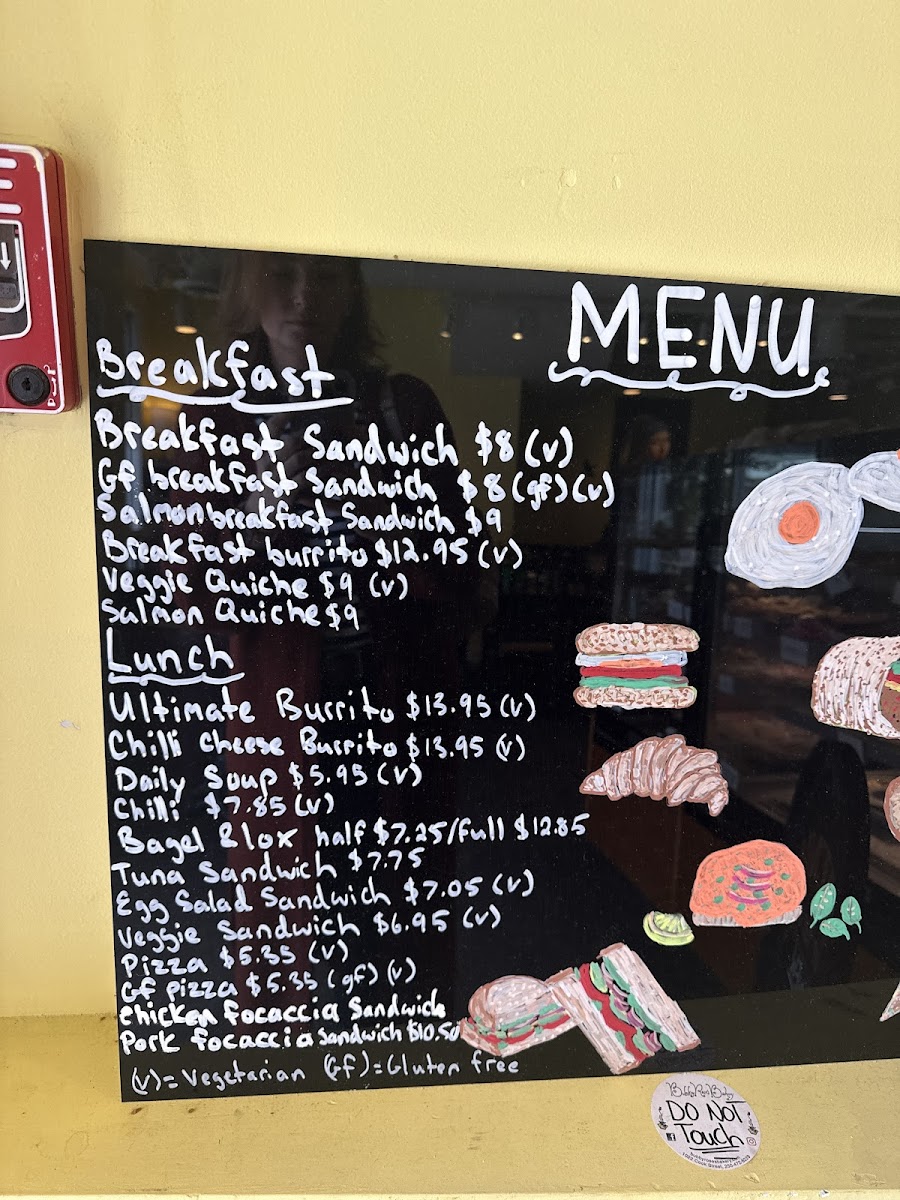 MENU
Breakfast
Breakfast Sandwich $8 (v)
Gf breakfast Sandwich $8 (gf) (v)
Salmon breakfast Sandwich $9
Breakfast burrito $12.95 (v)
Veggie Quiche $9 (v)
Salmon Quiche $9
Lunch
Ultimate Burrito $13.95 (v)
Chilli cheese Burrito $13.95 (v)
Daily Soup $5.95 (v)
Chilli $7.85 (v)
Bagel Blox half $7.25/full $12.85
Tuna Sandwich $7.75
Egg Salad Sandwich $7.05 (v)
Veggie Sandwich $6.95 (v)
Pizza $5.35 (v)
Gf pizza $5.35 (gf) (v)
chicken focaccia Sandwich
Pork focaccia Sandwich $10.50
(v)=Vegetarian (Gf)=Gluten free
DO NOT
Touch